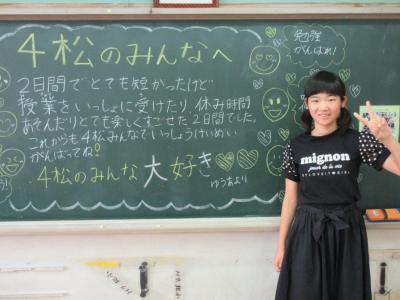 4松のみんなへ
2日間でとても短かったけど
授業をいっしょに受けたり、休み時間
あそんだりとても楽しくすごせた2日間でした。
これからも4松みんなでいっしょうけんめい
がんばってね!
4松のみんな大好き
ゆうあより
勉強
がんばれ!
mignon
jour de la vie